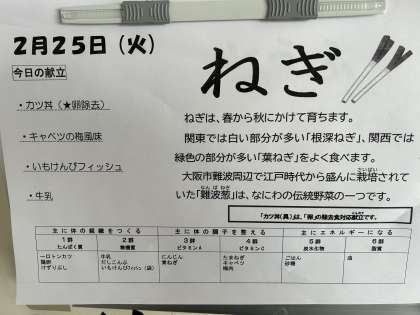 2月25日（火）
今日の献立
・カツ丼（★卵除去）
・キャベツの梅風味
・いもけんぴフィッシュ
・牛乳
ねぎ
ねぎは、春から秋にかけて育ちます。
関東では白い部分が多い「根深ねぎ」、関西では
緑色の部分が多い「葉ねぎ」をよく食べます。
さいばい
大阪市難波周辺で江戸時代から盛んに栽培されて
なんば ねぎ
いた「難波葱」は、なにわの伝統野菜の一つです。
「カツ丼（具）」は、「卵」の除去食対応献立です。
主に体の組織をつくる 主に体の調子を整える 主にエネルギーになる
1群 2群 3群 4群 5群 6群
たんぱく質 無機質 ビタミンA ビタミンC 炭水化物 脂質
一口トンカツ 牛乳 にんじん たまねぎ ごはん 油
鶏卵 だしこんぶ 青ねぎ キャベツ 砂糖
けずりぶし いもけんぴフィッシュ（袋） 梅肉